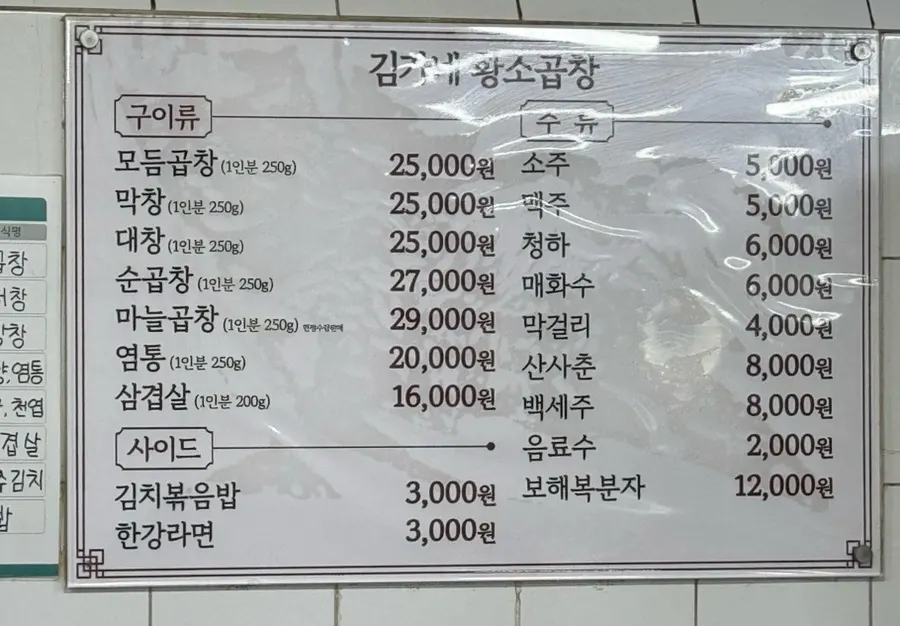 김가네 왕소곱창
구이류
모듬곱창 (1인분 250g) 25,000원
막창 (1인분 250g) 25,000원
대창 (1인분 250g) 25,000원
순곱창 (1인분 250g) 27,000원
마늘곱창 (1인분 250g) 한정수량판매 29,000원
염통 (1인분 250g) 20,000원
삼겹살 (1인분 200g) 16,000원
사이드
김치볶음밥 3,000원
한강라면 3,000원
주류
소주 5,000원
맥주 5,000원
청하 6,000원
매화수 6,000원
막걸리 4,000원
산사춘 8,000원
백세주 8,000원
음료수 2,000원
보해복분자 12,000원
식명
곱창
창
창
,염통
, 천엽
겹살
김치
밥